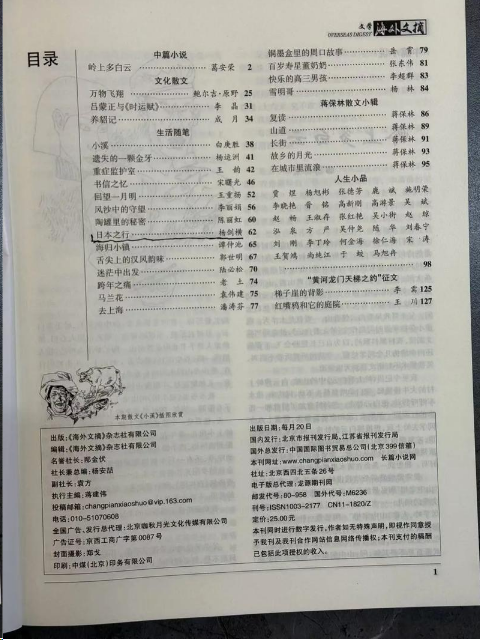 文学 海外文摘
OVERSEAS DIGEST
目录
中篇小说
岭上多白云 葛安荣 2
文化散文
万物飞翔 鲍尔吉·原野 25
吕蒙正与《时运赋》 李晶 31
养貂记 成月 34
生活随笔
小溪 白庚胜 38
遗失的一颗金牙 杨运洲 41
重症监护室 王韵 42
书信之忆 宋曙光 46
回望一月明 王童扬 52
风钞中的守望 李丽娟 56
陶罐里的秘密 陈丽虹 60
日本之行 杨剑横 62
海归小镇 谭仲池 65
舌尖上的汉风韵味 郭世明 67
迷茫中出发 陆必松 70
跨年之痛 老土 74
马兰花 袁伟建 75
去上海 潘涛芬 77
铜墨盒里的周口故事 岳宵 79
百岁寿星董奶奶 张东伟 81
快乐的高三男孩 李超群 83
雪明哥 杨林 84
蒋保林散文小辑
复读 蒋保林 86
山道 蒋保林 89
长街 蒋保林 91
故乡的月光 蒋保林 93
在城市里流浪 蒋保林 95
人生小品
贾理 杨旭彬 张德芳 鹿斌 施明荣
李晓艳 昔铭 高新刚 高淑景 吴斌
赵畅 王淑存 张红艳 吴小街 赵琼
泓泉 方芦 吴仲尧 陈华 刘春宁
刘刚 李丁玲 何金海 徐仁海 宋涛
王贺鸿 尚纯江 于蛟 马旭冉
98
“黄河龙门天梯之约”征文
梯子崖的背影 李需 125
红嘴鸦和它的庭院 王川 127
本期散文《小溪》插图欣赏
出版：《海外文摘》杂志社有限公司
编辑：《海外文摘》杂志社有限公司
名誉社长：郏金伏
社长兼总编：杨安喆
副社长：袁方
执行主编：蒋建伟
投稿邮箱：changpianxiaoshuo@vip.163.com
电话：010-51070608
全国广告、发行总代理：北京咖秋月光文化传媒有限公司
广告证号：京西工商广字第0087号
封面摄影：郑戈
印刷：中煤（北京）印务有限公司
出版日期：每月20日
国内发行：北京市报刊发行局，江苏省报刊发行局
国外总发行：中国国际图书贸易总公司（北京399信箱）
本刊网址：www.changpianxiaoshuo.com 长篇小说网
社址：北京西四北五条26号
电子版总代理：龙源期刊网
邮发代号：80-958 国外代号：M6236
刊号：ISSN1003-2177 CN11-1820/Z
定价：25.00元
本刊同时进行数字发行，作者如无特殊声明，即视作同意授
予我刊及我刊合作网站信息网络传播权；本刊支付的稿酬
已包括此项授权的收入。
1